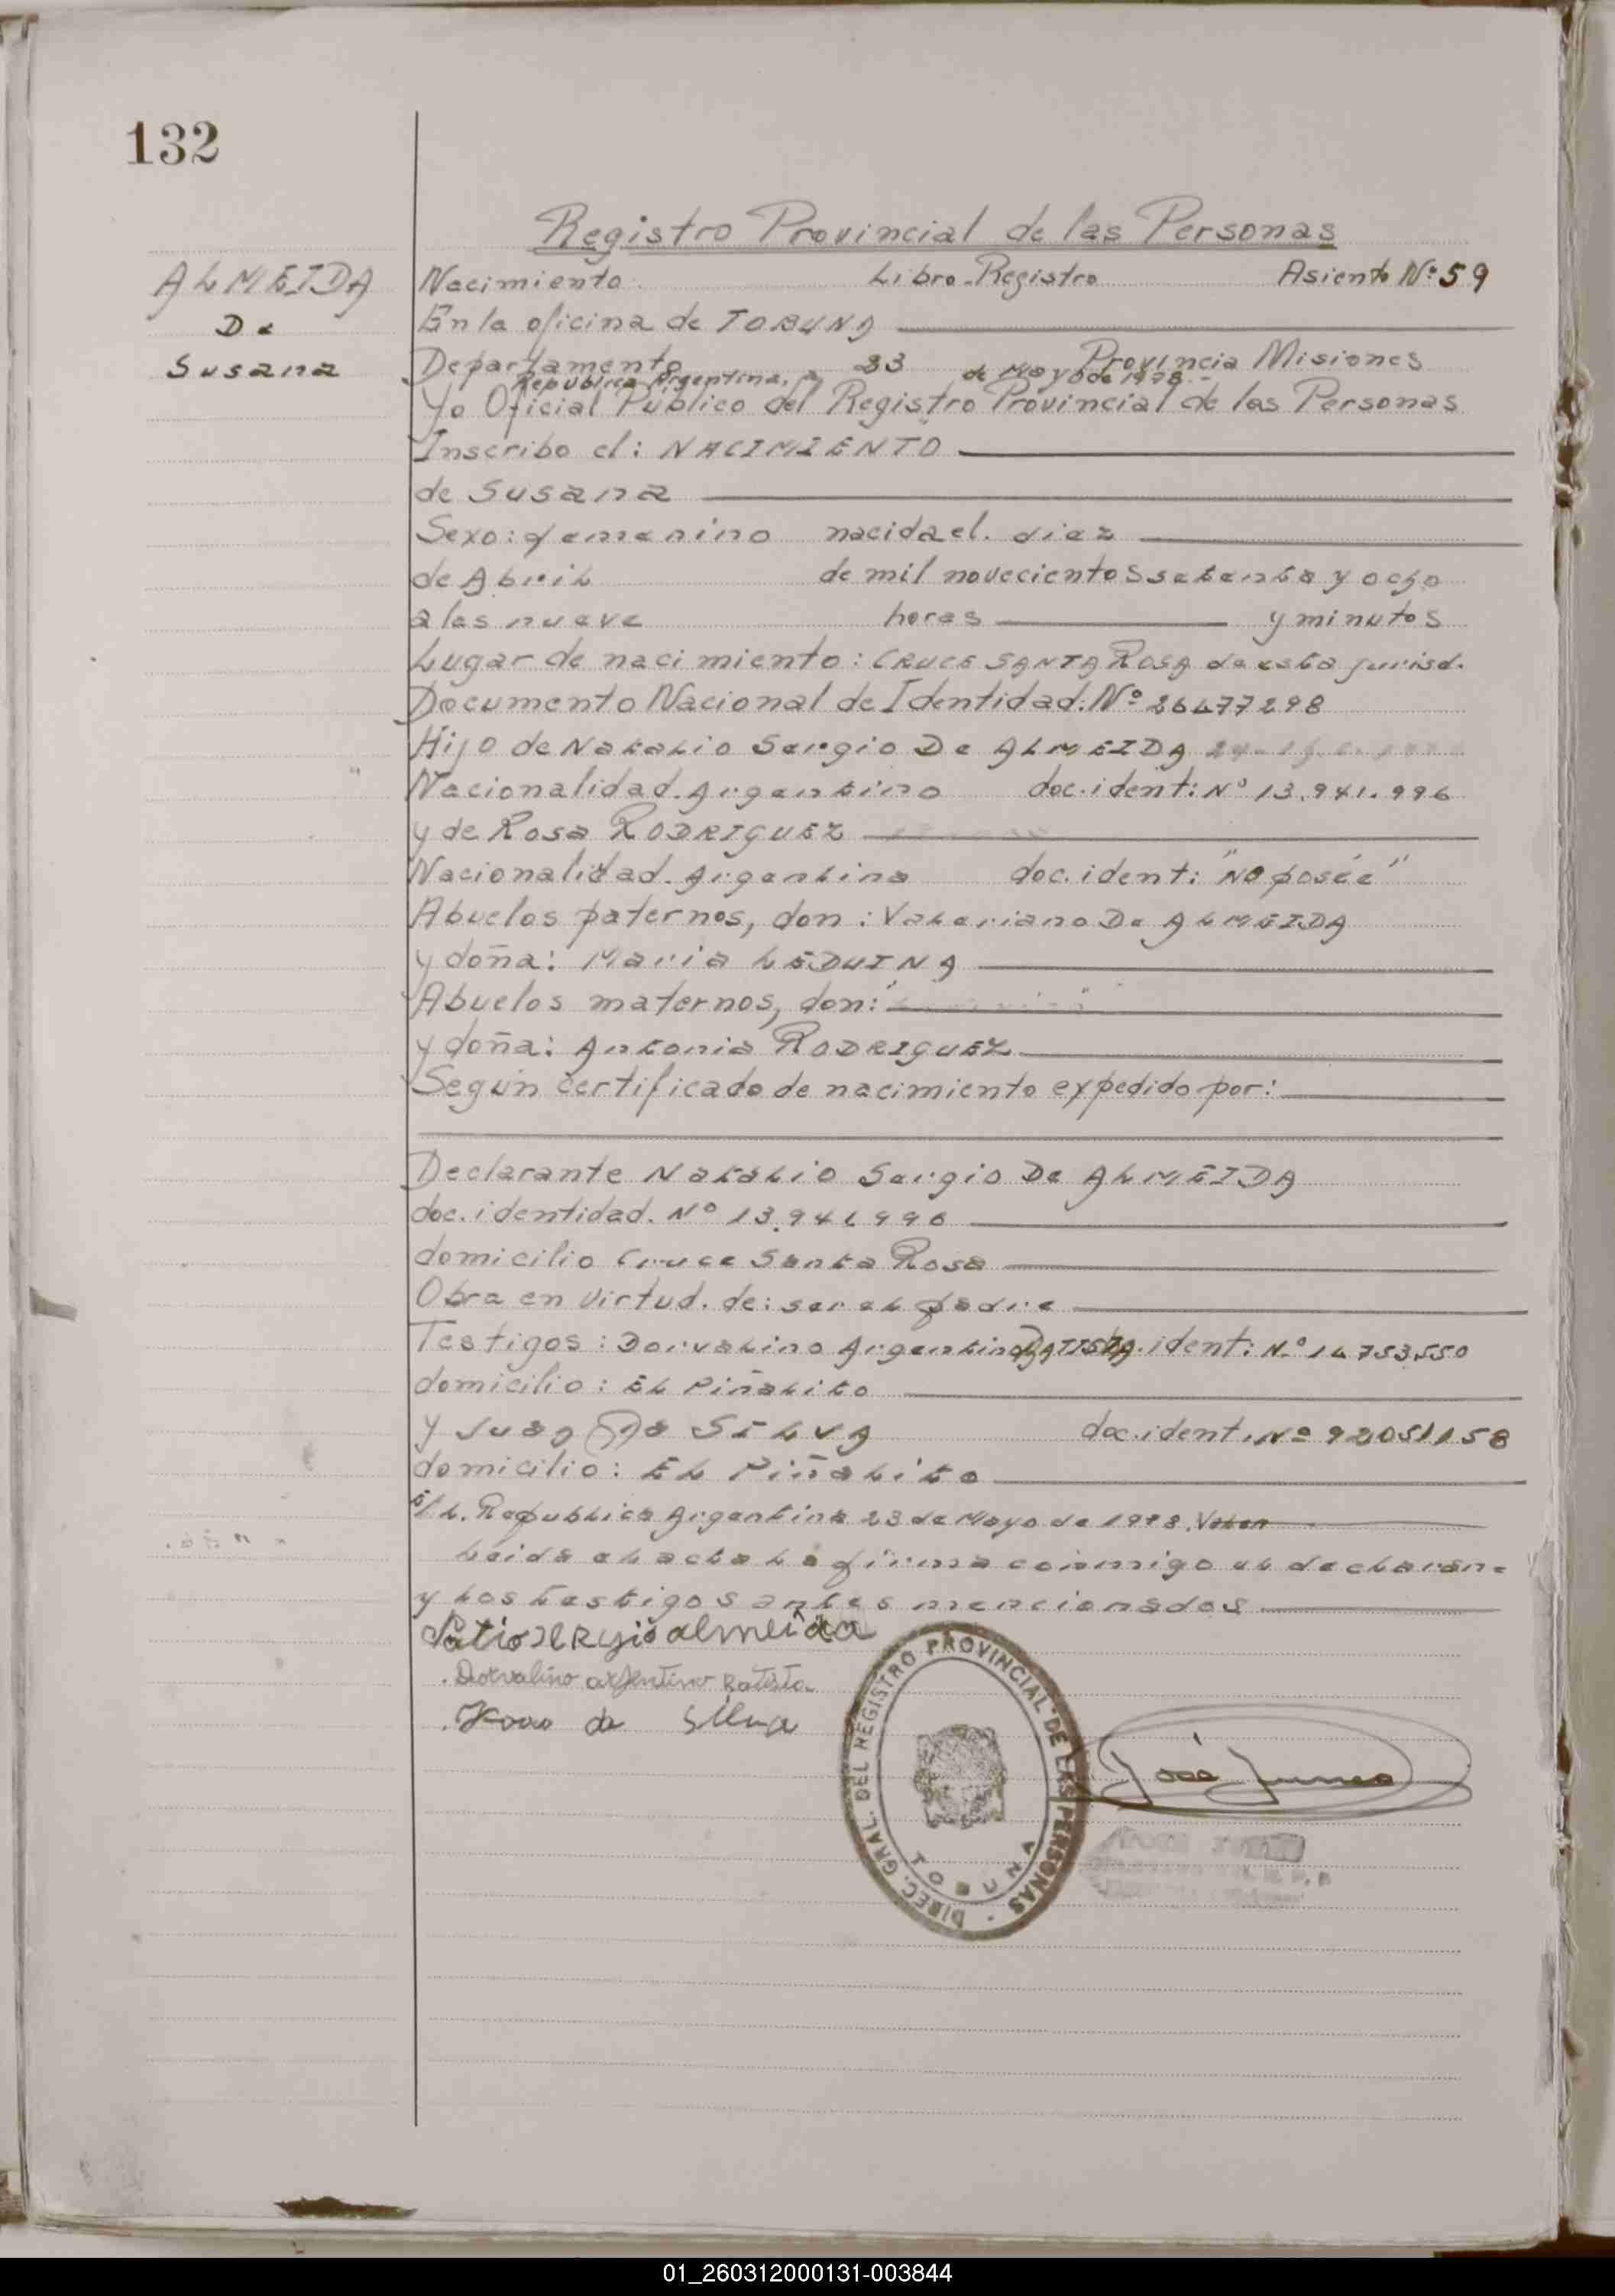 132
Registro Provincial de las Personas
ALMEIDA
De
Susana
Nacimiento Libro-Registro Asiento Nº 59
En la oficina de TOBUNA
Departamento Provincia Misiones
Republica Argentina, a 23 de Mayo de 1978.-
Yo Oficial Público del Registro Provincial de las Personas
Inscribo el: NACIMIENTO
de Susana
Sexo: femenino nacida el. diez
de Abril de mil novecientos setenta y ocho
a las nueve horas y minutos
Lugar de nacimiento: CRUCE SANTA ROSA de esta jurisd.
Documento Nacional de Identidad. Nº 26477298
Hijo de Natalio Sergio De ALMEIDA
Nacionalidad. Argentino doc. ident: Nº 13.941.996
y de Rosa RODRIGUEZ
Nacionalidad. Argentina doc. ident: "NO poséé"
Abuelos paternos, don: Valeriano De ALMEIDA
y doña: Maria LEDUINA
Abuelos maternos, don:
y doña: Antonia RODRIGUEZ
Según certificado de nacimiento expedido por:
Declarante Natalio Sergio De ALMEIDA
doc. identidad. Nº 13.941996
domicilio Cruce Santa Rosa
Obra en virtud. de: ser el padre
Testigos: Dorvalino Argentino BATISTA. ident: Nº 14753.550
domicilio: EL Piñalito
y Juan Da SILVA doc. ident. Nº 92051158
domicilio: EL Piñalito
E/L. Republica Argentina 23 de Mayo de 1978. Valen
Leida el acta la firma conmigo el declaran-
y los testigos antes mencionados
Sergio almeida
Dorvalino argentino Batista
Joao da Silva
DIREC. GRAL. DEL REGISTRO PROVINCIAL DE LAS PERSONAS
TOBUNA
José
01_260312000131-003844